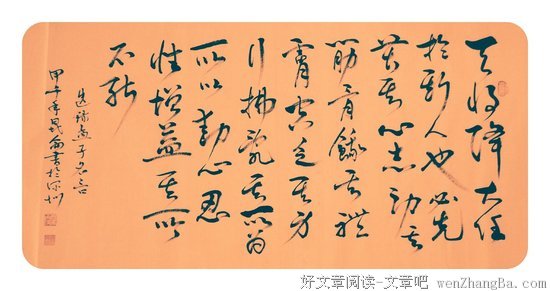 天将降大任
於斯人也必先
苦其心志劳其
筋骨饿其体
膚空乏其身
行拂乱其所为
所以動心忍
性增益其所
不能
选录孟子名言
甲午年書於深圳
好文章阅读-文章吧 wenZhangBa.com